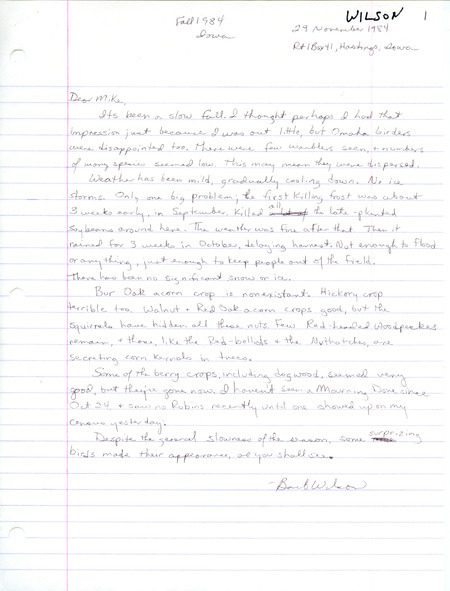 WILSON 1
Fall 1984
Iowa
29 November 1984
Rt 1 Box 41, Hastings, Iowa
Dear Mike,
Its been a slow fall. I thought perhaps I had that
impression just because I was out little, but Omaha birders
were disappointed too. There were few warblers seen, + numbers
of many species seemed low. This may mean they were dispersed.
Weather has been mild, gradually cooling down. No ice
storms. Only one big problem; the first killing frost was about
3 weeks early, in September. Killed all the late-planted
Soybeans around here. The weather was fine after that. Then it
rained for 3 weeks in October, delaying harvest. Not enough to flood
or anything, just enough to keep people out of the field.
There has been no significant snow or ice.
Bur Oak acorn crop is nonexistant. Hickory crop
terrible too. Walnut + Red Oak acorn crops good, but the
squirrels have hidden all these nuts. Few Red-headed Woodpeckers
remain, + those, like the Red-bellieds + the Nuthatches, are
secreting corn kernels in trees.
Some of the berry crops, including dogwood, seemed very
good, but they're gone now. I haven't seen a Mourning Dove since
Oct 24, + saw no Robins recently until one showed up on my
census yesterday.
Despite the general slowness of the season, some surprizing
birds made their appearance, as you shall see.
-Barb Wilson